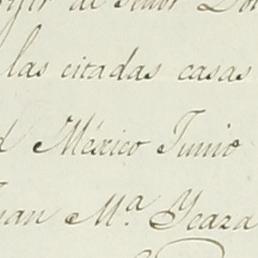 de Señor Don
las citadas casas
d México Junio
Juan M.ª Ycaza